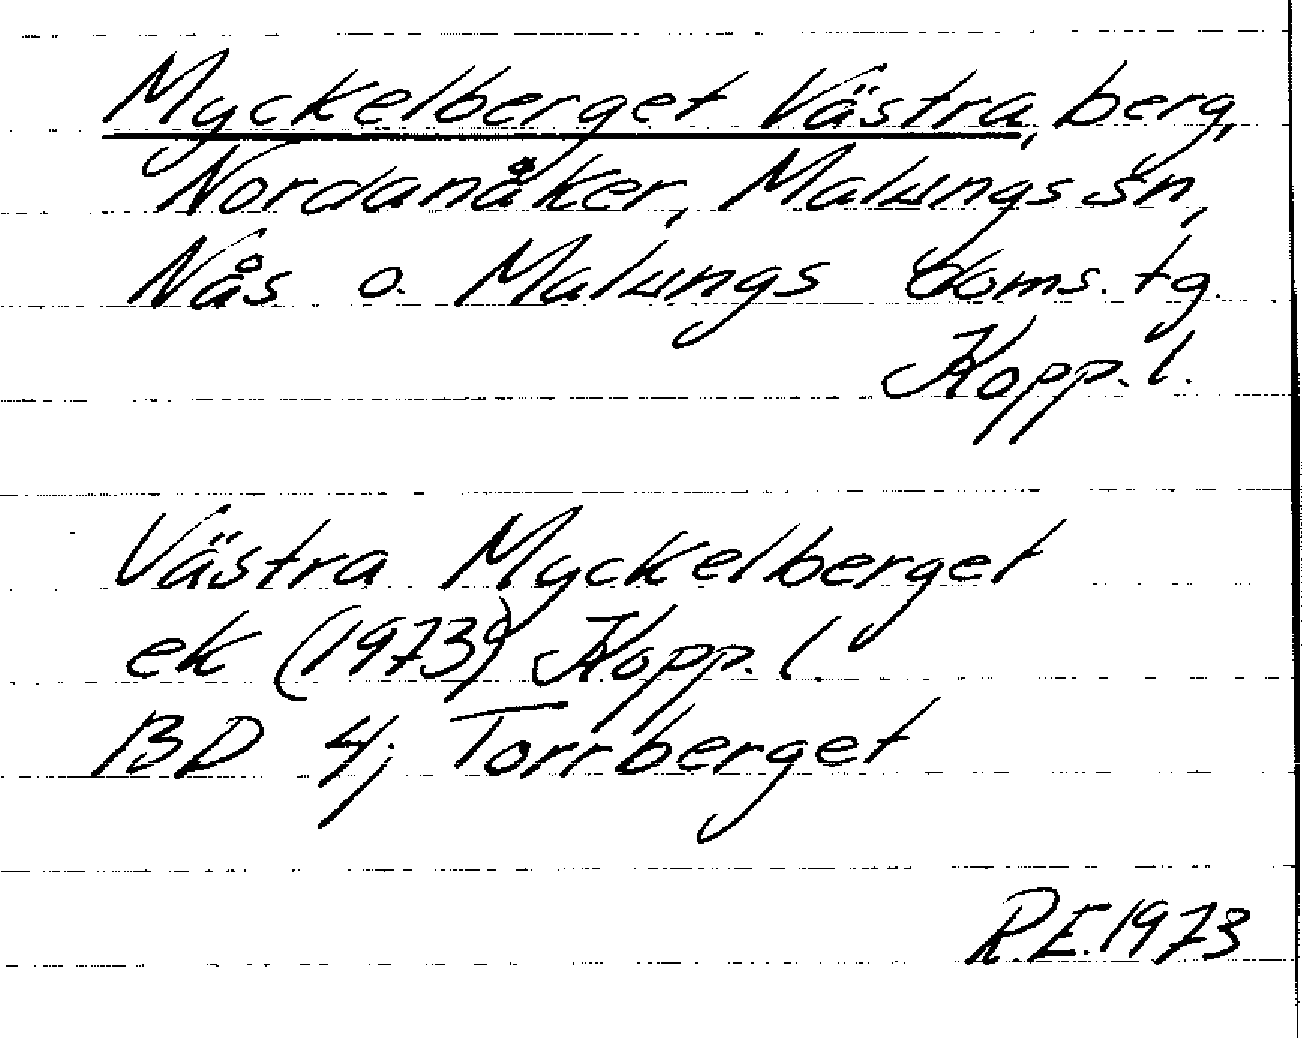 Myckelberget Västra, berg,
Nordanåker, Malungs sn,
Nås o. Malungs doms. tg.
Kopp. l.
Västra Myckelberget
ek (1973) Kopp. l.
BD 4; Torrberget
R.E. 1973